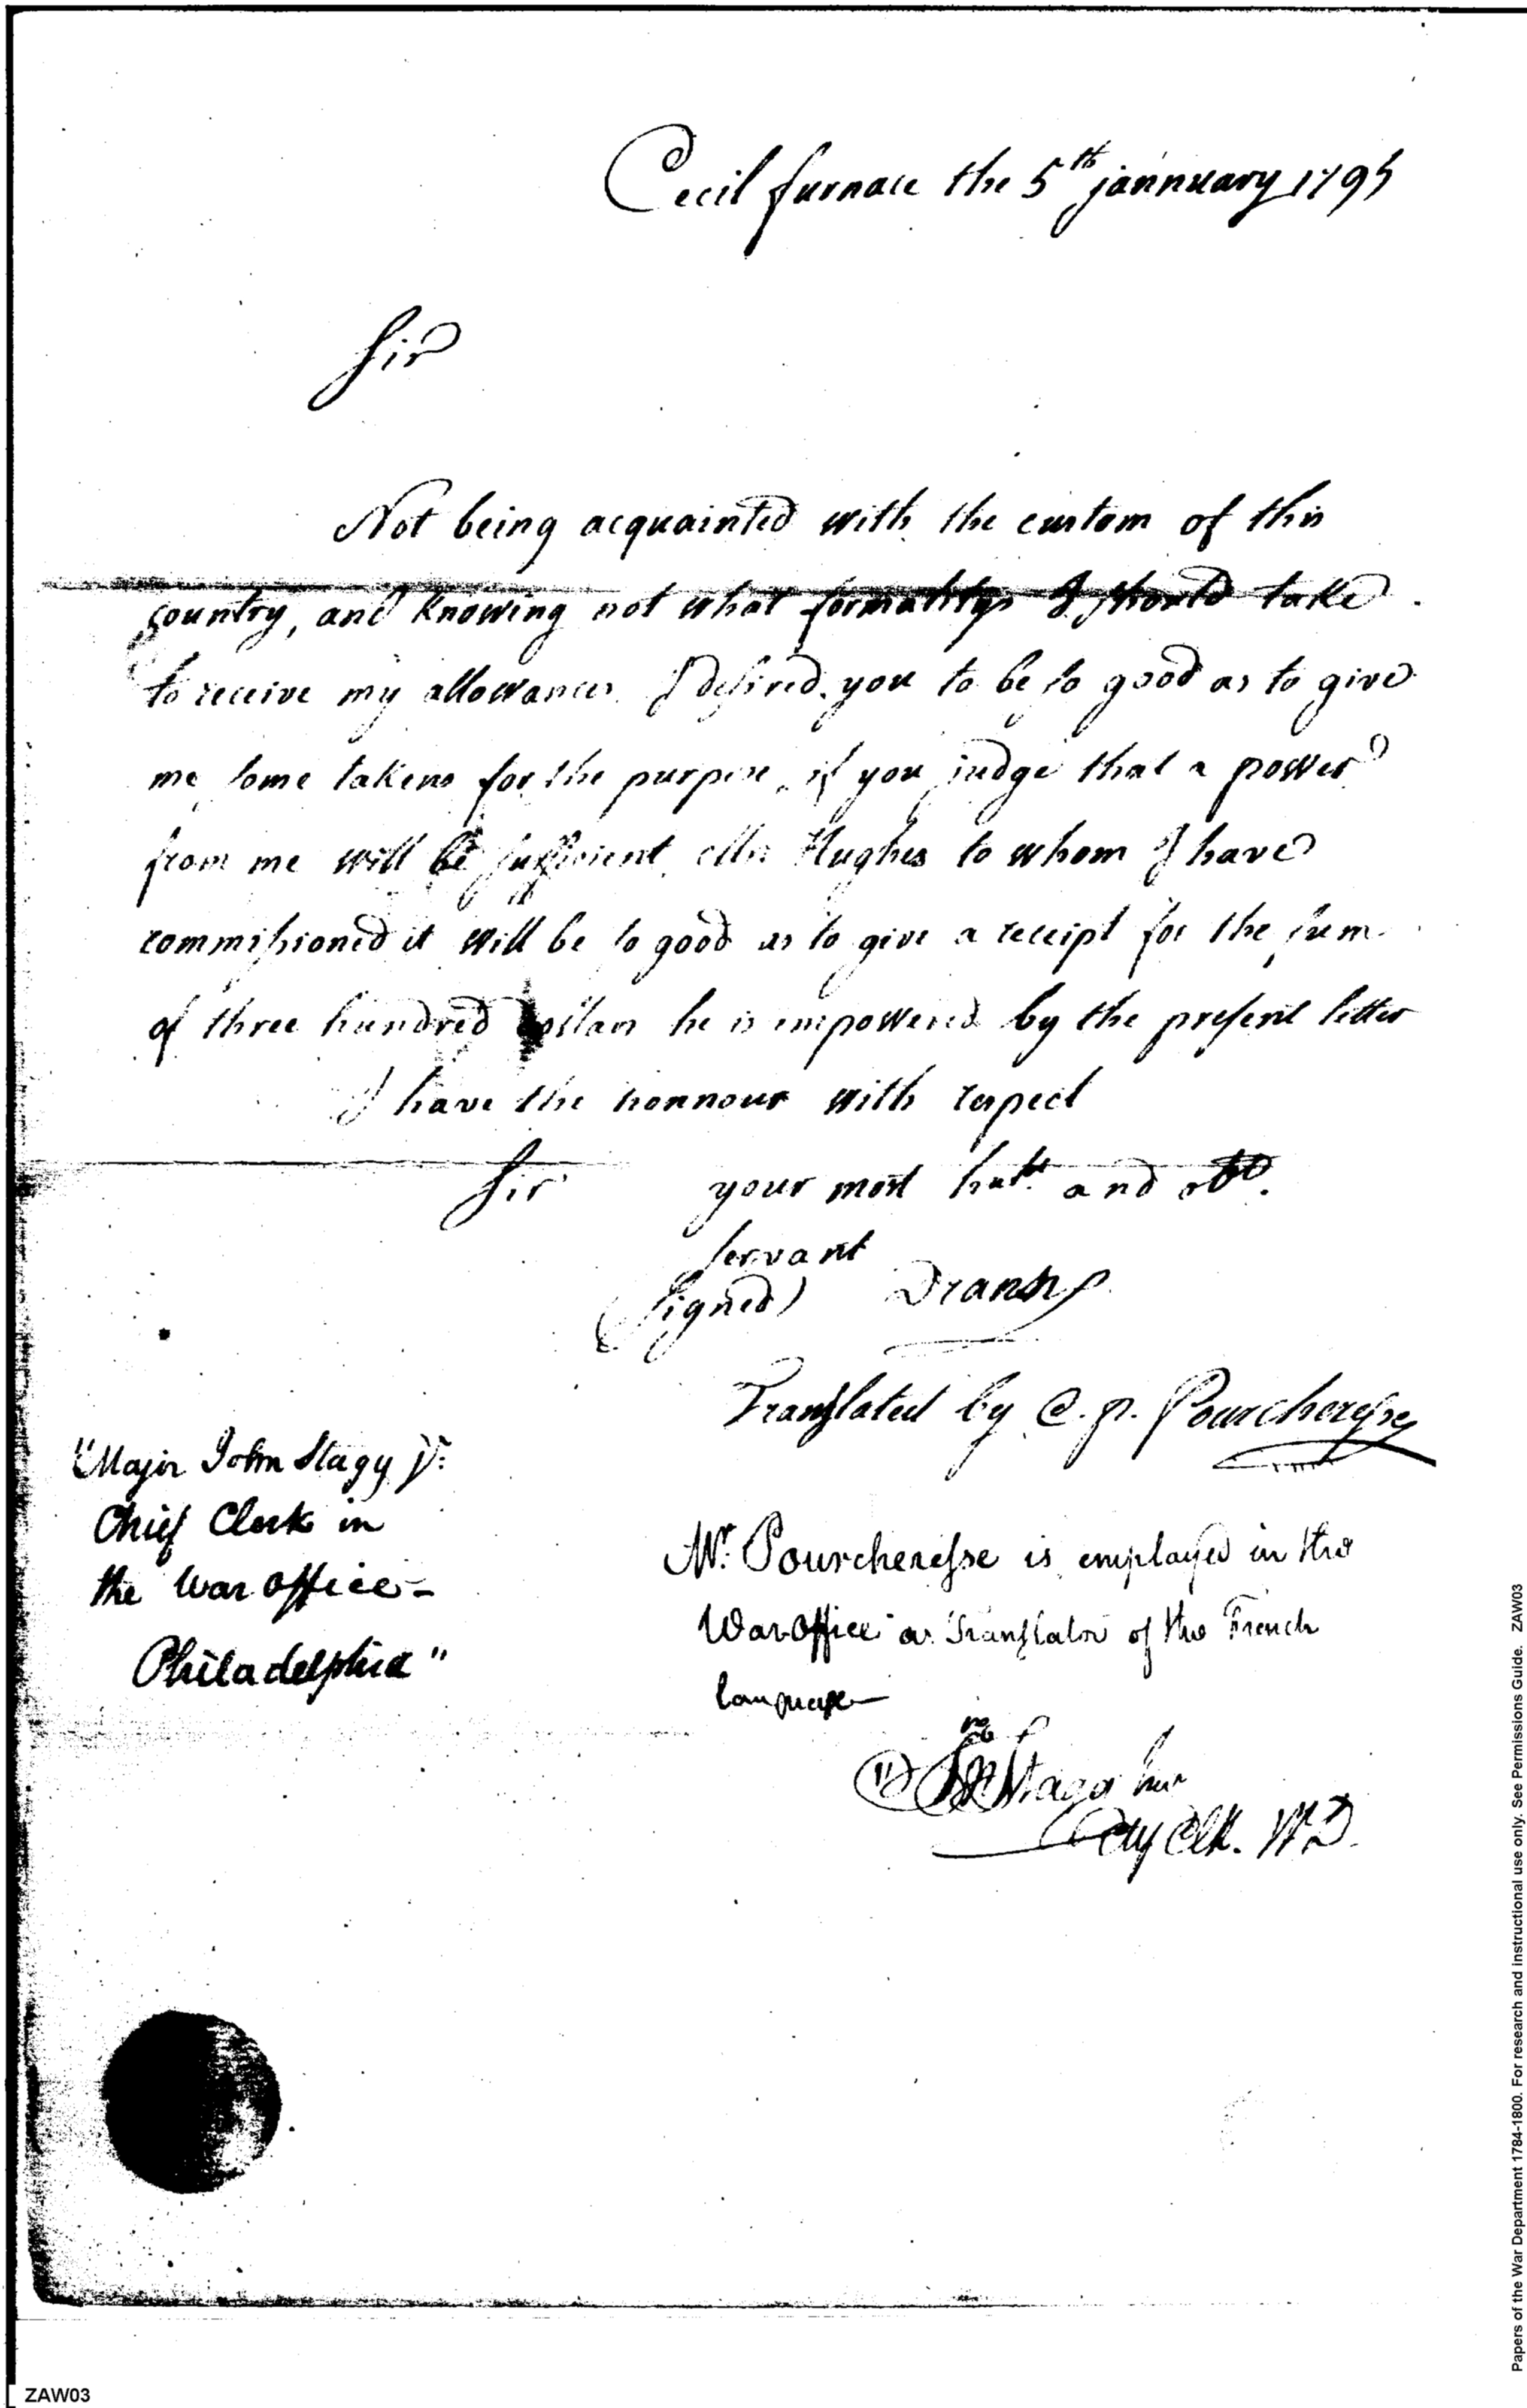 Cecil furnace the 5th jannuary 1795
Sir
Not being acquainted with the custom of this
country, and knowing not what formalitys I should take
to receive my allowances. I desired you to be so good as to give
me some takens for the purpose, if you judge that a power
from me will be sufficient, Mr. Hughes to whom I have
commissioned it will be so good as to give a receipt for the sum
of three hundred dollars he is empowered by the present letter
I have the honnour with respect
Sir your most and
servant
(signed)
Translated by C. p. Pourcheresse
"Major John Stagg Jr:
Chief Clerk in
the War office-
Philadelphia"
Mr. Pourcheresse is employed in the
War Office as Translator of the French
language
Jno Stagg Junr
Clk. W D.
Papers of the War Department 1784-1800. For research and instructional use only. See Permissions Guide. ZAW03
ZAW03